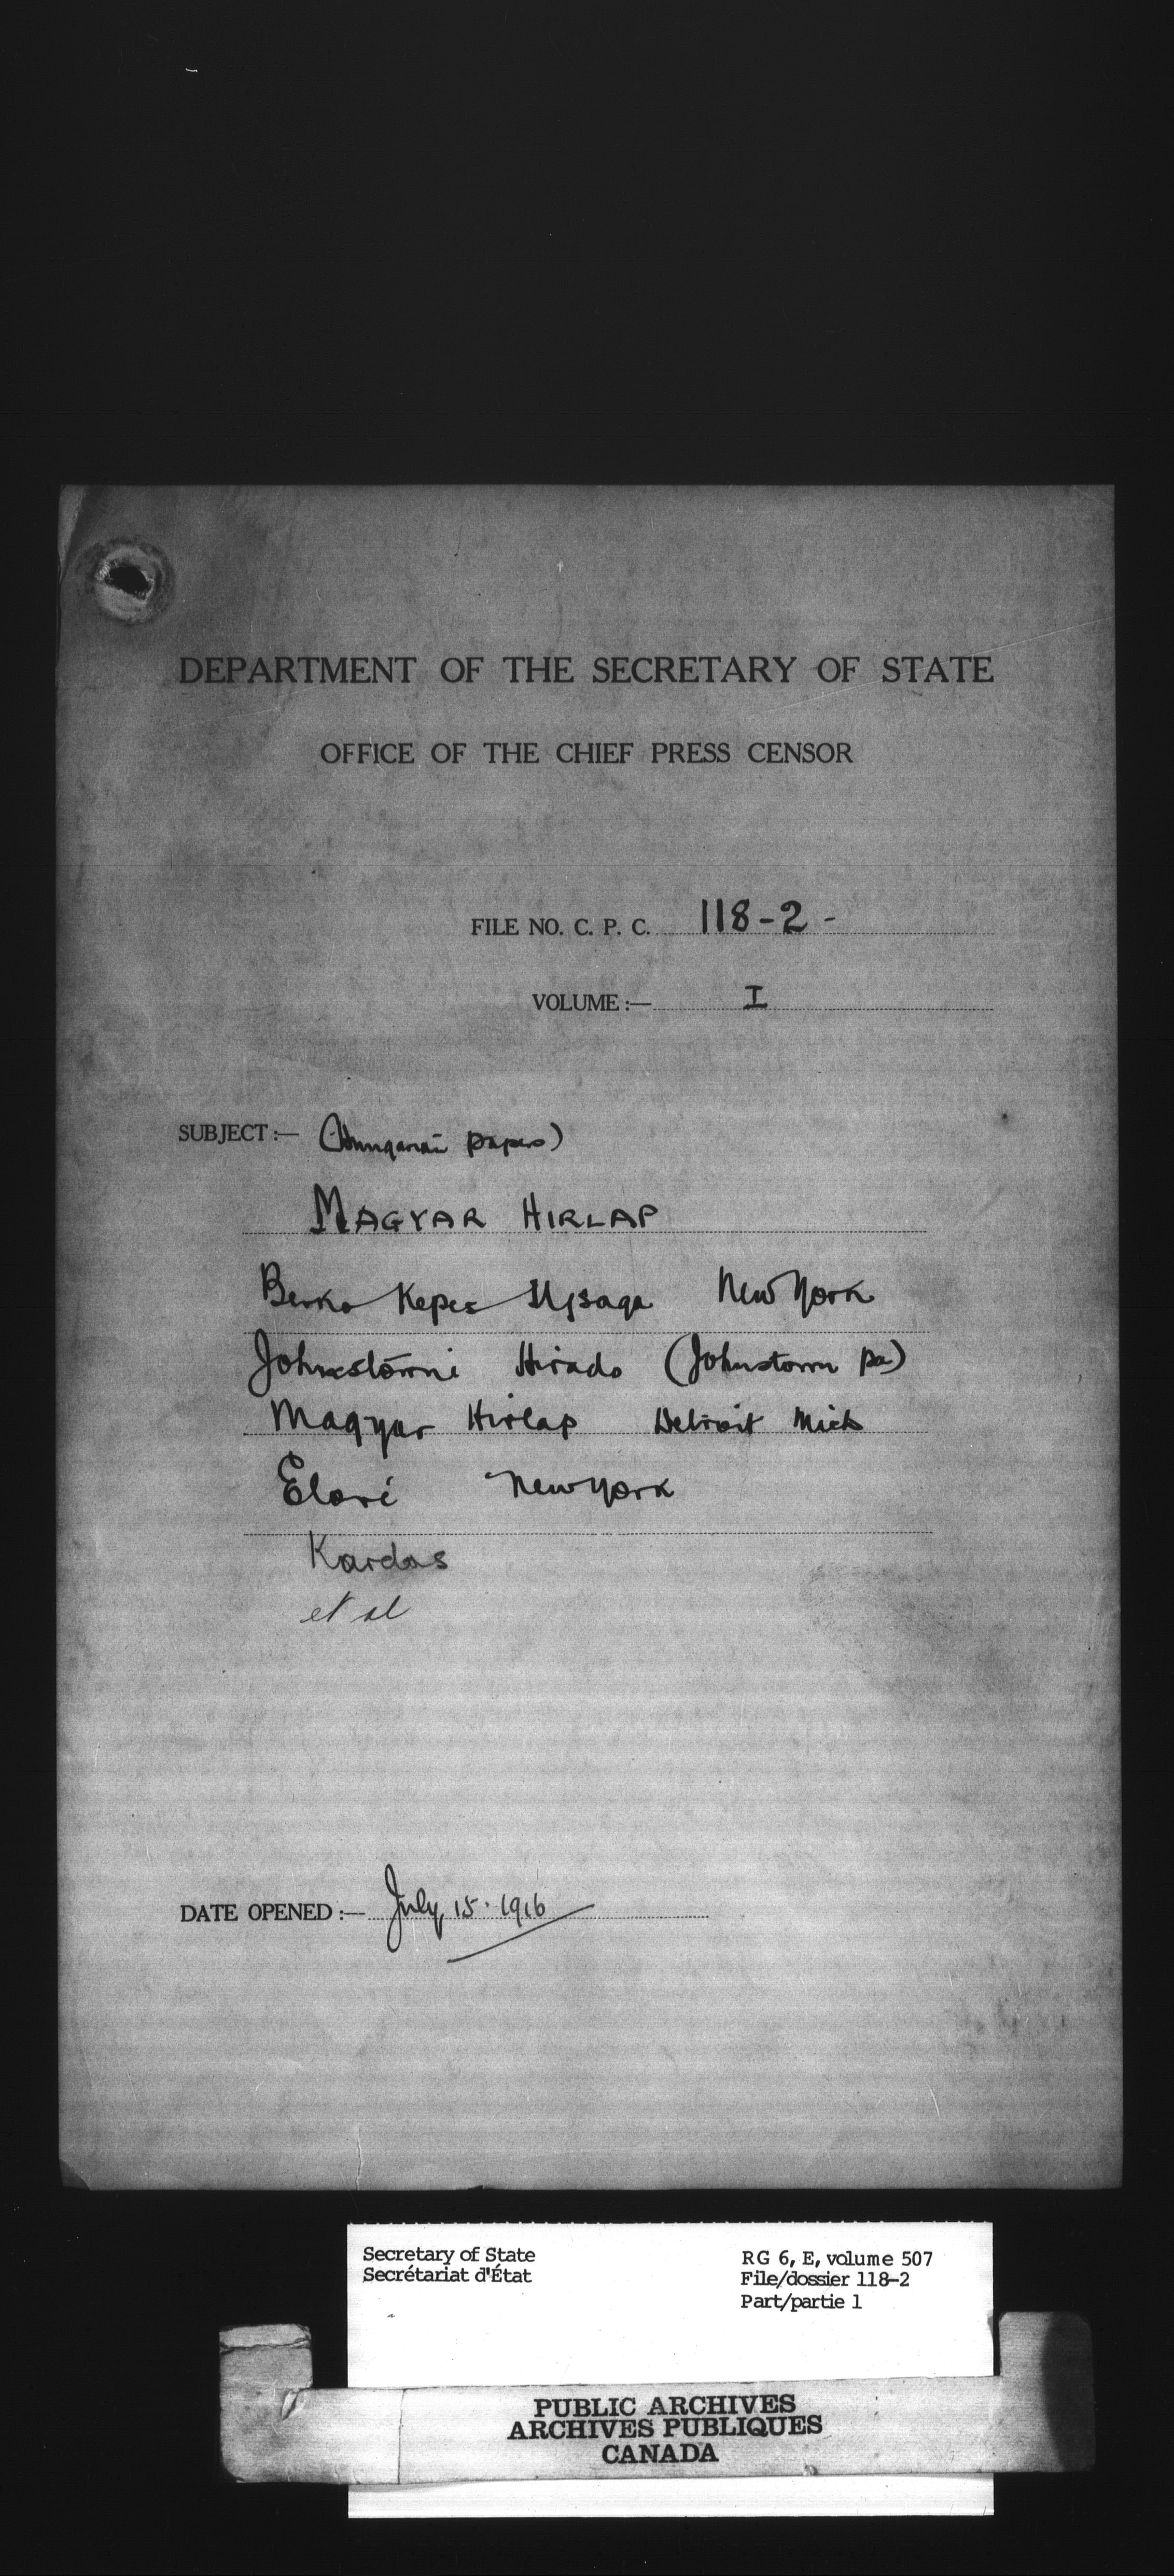 DEPARTMENT OF THE SECRETARY OF STATE
OFFICE OF THE CHIEF PRESS CENSOR
FILE NO. C. P. C. 118-2 -
VOLUME :— I
SUBJECT :— (Hungarian papers)
MAGYAR HIRLAP
Berko Kepes Ujsaga New York
Johnstowni Hirado (Johnstown Pa)
Magyar Hirlap Detroit Mich
Elöré New York
Kardos
et al
DATE OPENED :— July 15. 1916
Secretary of State RG 6, E, volume 507
Secrétariat d'État File/dossier 118-2
Part/partie 1
PUBLIC ARCHIVES
ARCHIVES PUBLIQUES
CANADA